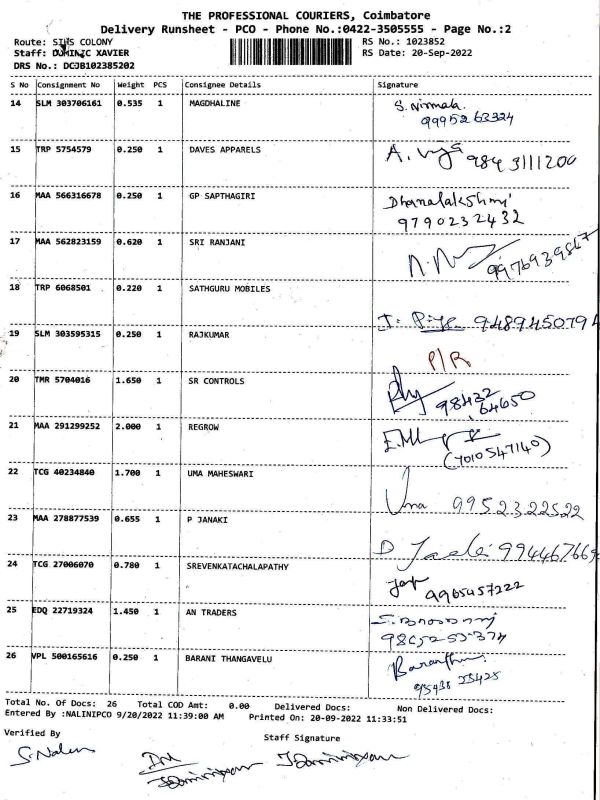 THE PROFESSIONAL COURIERS, Coimbatore
Delivery Runsheet - PCO - Phone No.:0422-3505555 - Page No.:2
Route: SIHS COLONY
RS No.: 1023852
Staff: DOMINIC XAVIER
RS Date: 20-Sep-2022
DRS No.: DCJB102385202
S No Consignment No Weight PCS Consignee Details Signature
14 SLM 303706161 0.535 1 MAGDHALINE S. Nirmala
9995263324
15 TRP 5754579 0.250 1 DAVES APPARELS A. 9843111200
16 MAA 566316678 0.250 1 GP SAPTHAGIRI Dhanalakshmi
9790232432
17 MAA 562823159 0.620 1 SRI RANJANI 9976939867
18 TRP 6068501 0.220 1 SATHGURU MOBILES
J. Priya 9489450794
19 SLM 303595315 0.250 1 RAJKUMAR
P/R
20 TMR 5704016 1.650 1 SR CONTROLS
98432
64650
21 MAA 291299252 2.000 1 REGROW
(7010547140)
22 TCG 40234840 1.700 1 UMA MAHESWARI
Uma 9952322522
23 MAA 278877539 0.655 1 P JANAKI
24 TCG 27006070 0.780 1 SREVENKATACHALAPATHY
9965457222
25 EDQ 22719324 1.450 1 AN TRADERS
26 VPL 500165616 0.250 1 BARANI THANGAVELU
Total No. Of Docs: 26 Total COD Amt: 0.00 Delivered Docs: Non Delivered Docs:
Entered By :NALINIPCO 9/20/2022 11:39:00 AM Printed On: 20-09-2022 11:33:51
Verified By
Staff Signature
S. Nalini